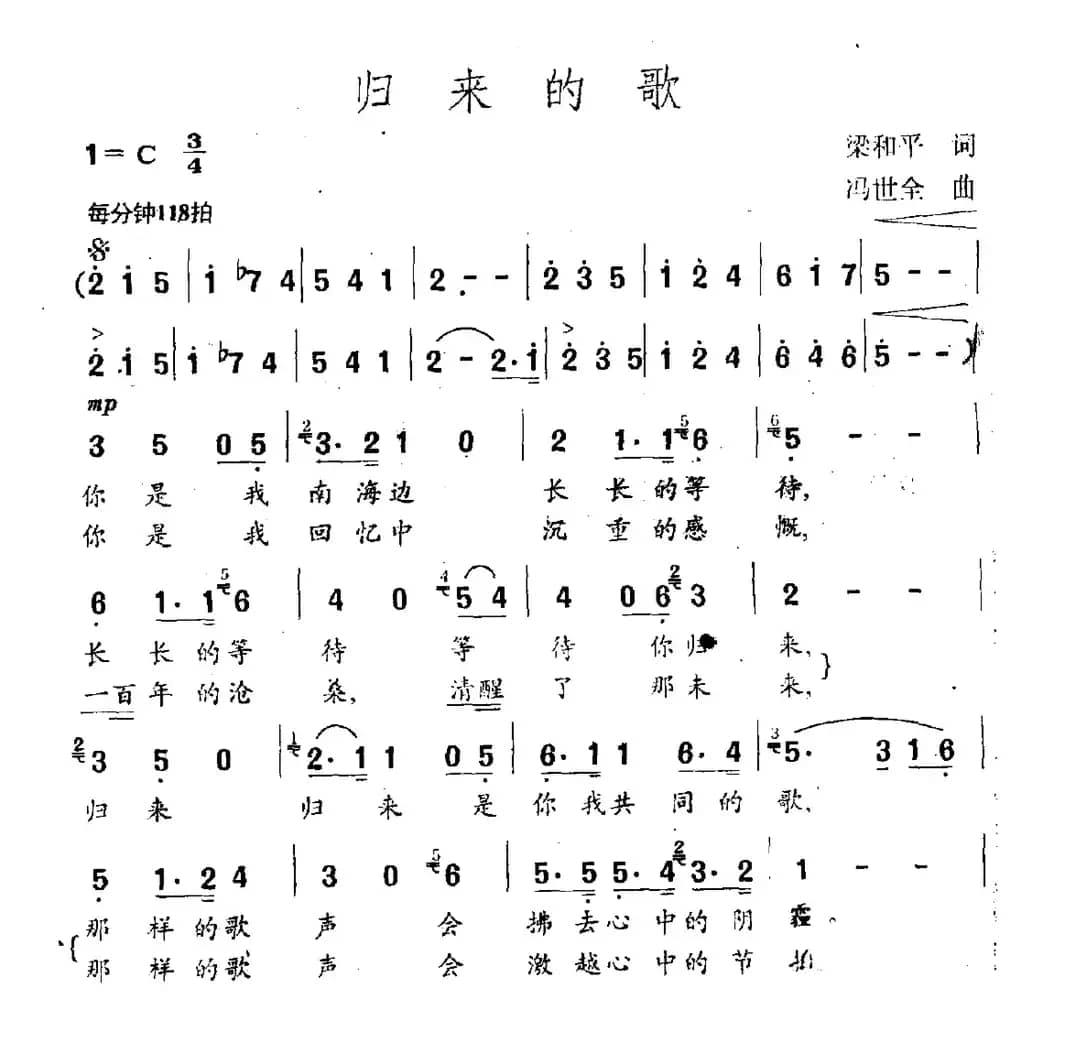 归来的歌
1=C 3/4
梁和平 词
冯世全 曲
每分钟118拍
(2 1 5 | 1 ♭7 4 | 5 4 1 | 2 - - | 2 3 5 | 1 2 4 | 6 1 7 | 5 - - |
2 1 5 | 1 ♭7 4 | 5 4 1 | 2 - 2· 1 | 2 3 5 | 1 2 4 | 6 4 6 | 5 - - )
mp
3 5 0 5 | 2 3· 2 1 0 | 2 1· 1 5 6 | 6 5 - - |
你是我南海边 长长的等待,
你是我回忆中 沉重的感慨,
6 1· 1 5 6 | 4 0 4 5 4 | 4 0 6 2 3 | 2 - - |
长长的等待 等待你归来,
一百年的沧桑, 清醒了那未来,
2 3 5 0 | 1 2· 1 1 0 5 | 6· 1 1 6· 4 | 3 5· 3 1 6 |
归来 归来是你我共同的歌,
5 1· 2 4 | 3 0 5 6 | 5· 5 5· 4 2 3· 2 | 1 - - |
那样的歌声会拂去心中的阴霾。
那样的歌声会激越心中的节拍